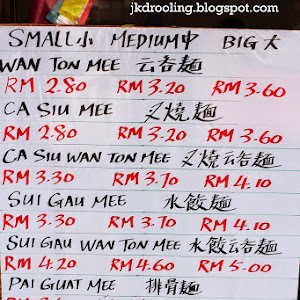 jkdrooling.blogspot.com
SMALL小 MEDIUM中 BIG大
WAN TON MEE 云吞麵
RM 2.80 RM 3.20 RM 3.60
CA SIU MEE 叉燒麵
RM 2.80 RM 3.20 RM 3.60
CA SIU WAN TON MEE 叉燒云吞麵
RM 3.30 RM 3.70 RM 4.10
SUI GAU MEE 水餃麵
RM 3.30 RM 3.70 RM 4.10
SUI GAU WAN TON MEE 水餃云吞麵
RM 4.20 RM 4.60 RM 5.00
PAI GUAT MEE 排骨麵